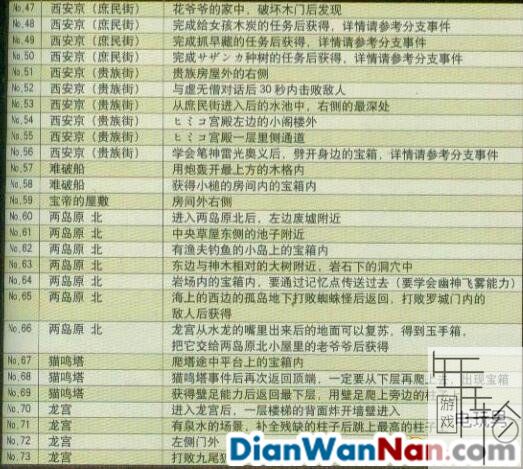 No.47 西安京（庶民街） 花爷爷的家中，破坏木门后发现
No.48 西安京（庶民街） 完成给女孩木炭的任务后获得，详情请参考分支事件
No.49 西安京（庶民街） 完成抓早藏的任务后获得，详情请参考分支事件
No.50 西安京（庶民街） 完成サザンカ种树的任务后获得，详情请参考分支事件
No.51 西安京（贵族街） 贵族房屋外的右侧
No.52 西安京（贵族街） 与虚无僧对话后30秒内击败敌人
No.53 西安京（贵族街） 从庶民街进入后的水池中，右侧的最深处
No.54 西安京（贵族街） ヒミコ宫殿左边的小阁楼外
No.55 西安京（贵族街） ヒミコ宫殿一层里侧通道
No.56 西安京（贵族街） 学会笔神雷光奥义后，劈开身边的宝箱，详情请参考分支事件
No.57 难破船 用炮轰开最上方的木格内
No.58 难破船 获得小槌的房间内的宝箱内
No.59 宝帝的屋敷 房间外右侧
No.60 两岛原 北 进入两岛原北后，左边废墟附近
No.61 两岛原 北 中央草屋东侧的池子附近
No.62 两岛原 北 有渔夫钓鱼的小岛上的宝箱内
No.63 两岛原 北 东边与神木相对的大树附近，岩石下的洞穴中
No.64 两岛原 北 岩场内的宝箱内，要通过记忆点传送过去（要学会幽神飞雾能力）
No.65 两岛原 北 海上的西边的孤岛地下打败蜘蛛怪后返回，打败罗城门内的
敌人后获得
No.66 两岛原 北 龙宫从水龙的嘴里出来后的地面可以复苏，得到玉手箱，
把它交给两岛原北小屋里的老爷爷后获得
No.67 猫鸣塔 爬塔途中平台上的宝箱内
No.68 猫鸣塔 猫鸣塔事件后再次返回顶端，一定要从下层再爬上去，出现宝箱
No.69 猫鸣塔 获得壁足能力后返回最下层，用壁足爬上旁边的柱
No.70 龙宫 进入龙宫后，一层楼梯的背面炸开墙壁进入
No.71 龙宫 有泉水的场景，补全残缺的柱子后跳上最高的柱子
No.72 龙宫 左侧门外
No.73 龙宫 打败九尾狐
游戏
电玩男
DianWanNan.Com